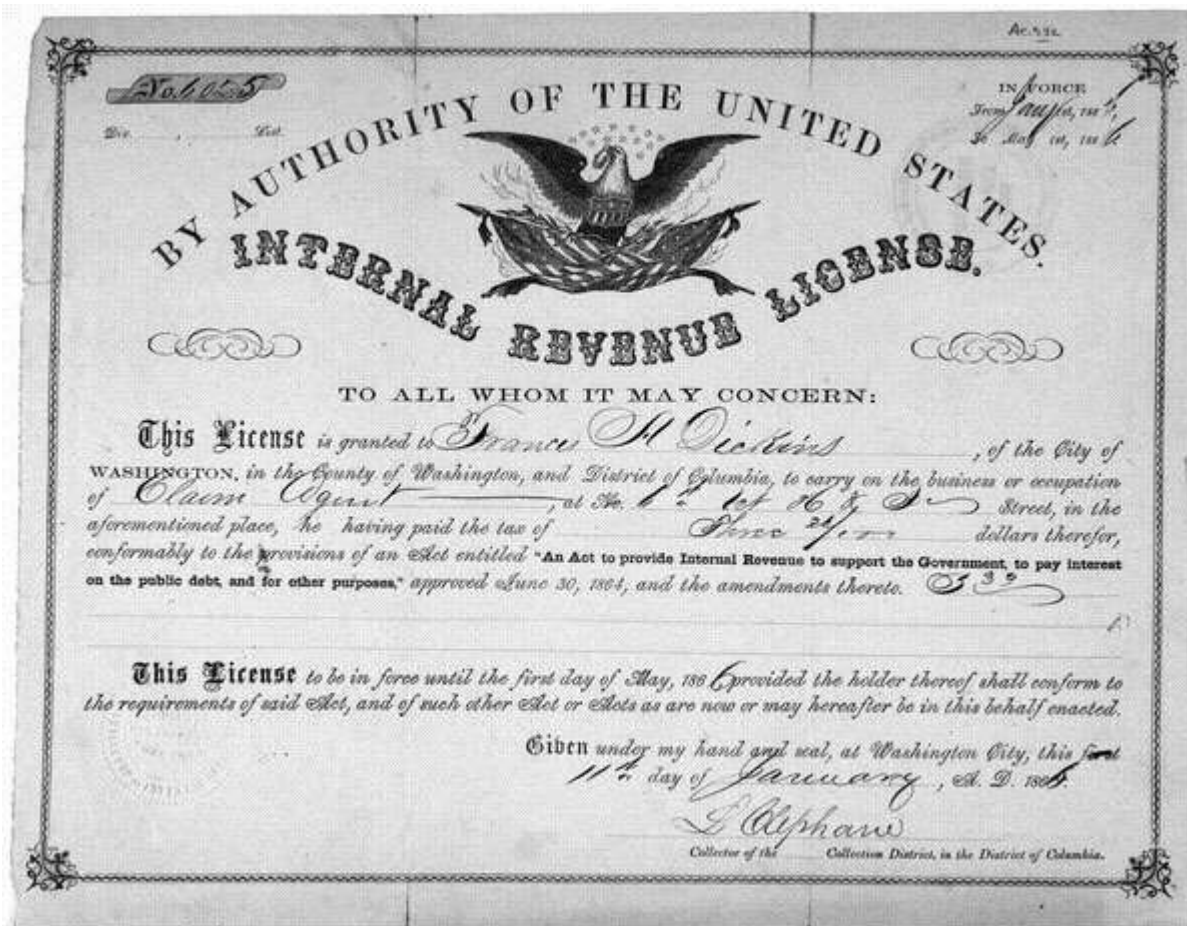 No. 6055
IN FORCE
Div. , Dist.
From Jany 1st, 186
To May 1st, 1866
BY AUTHORITY OF THE UNITED STATES.
INTERNAL REVENUE LICENSE.
TO ALL WHOM IT MAY CONCERN:
This License is granted to Frances H Dickins , of the City of
WASHINGTON, in the County of Washington, and District of Columbia, to carry on the business or occupation
of Claim Agent , at No. Street, in the
aforementioned place, he having paid the tax of Three dollars therefor,
conformably to the provisions of an Act entitled "An Act to provide Internal Revenue to support the Government, to pay interest
on the public debt, and for other purposes," approved June 30, 1864, and the amendments thereto.
This License to be in force until the first day of May, 1866 provided the holder thereof shall conform to
the requirements of said Act, and of such other Act or Acts as are now or may hereafter be in this behalf enacted.
Given under my hand and seal, at Washington City, this first
11th day of January , A. D. 1866.
L Clephane
Collector of the Collection District, in the District of Columbia.